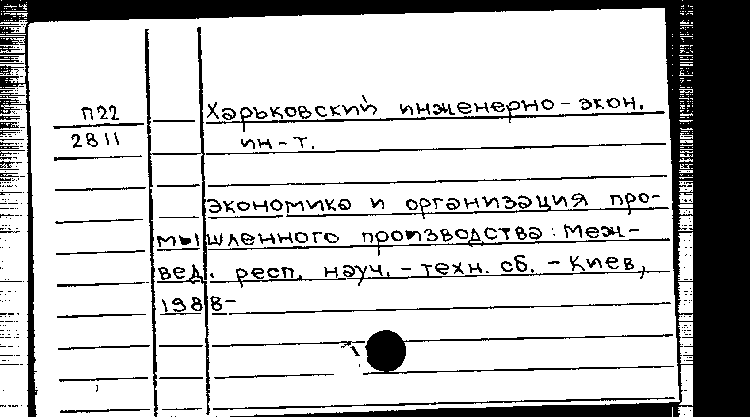 П22 Харьковский инженерно-экон.
2811 ин-т.
Экономика и организация про-
мышленного производства: Меж-
вед. респ. науч.-техн. сб. - Киев,
1988-